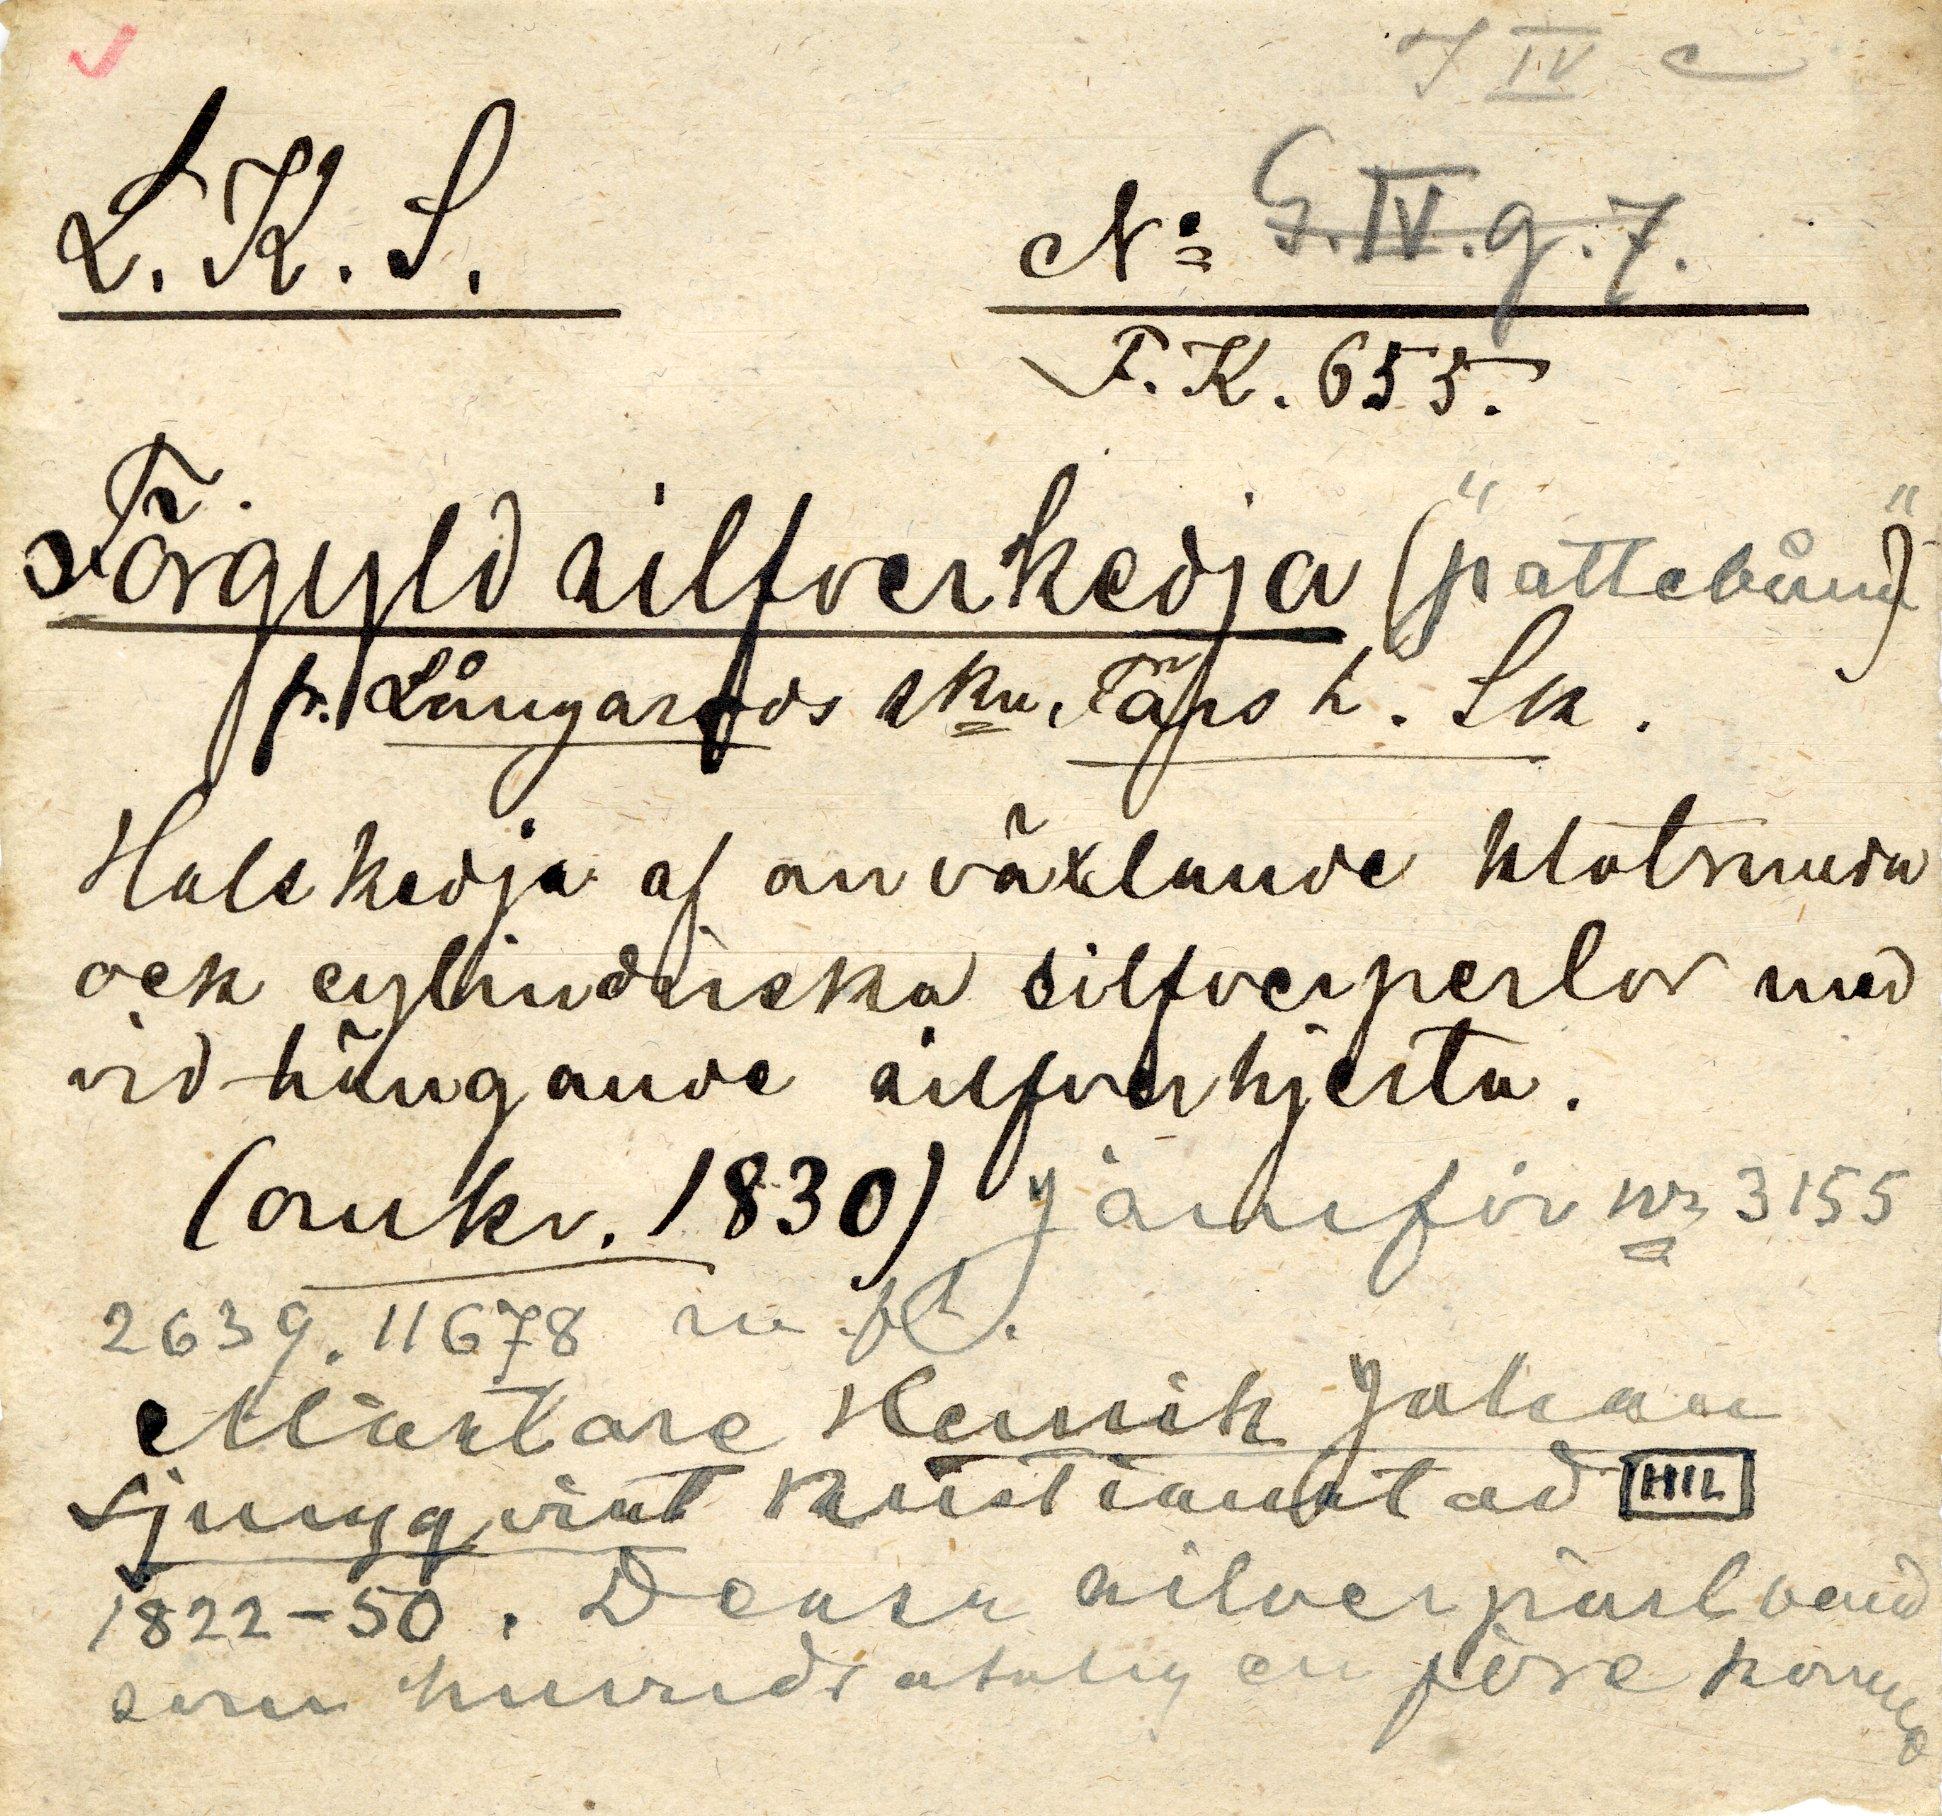 7 IV c
L. K. S.
No G. IV. g. 7.
F. K. 655.
Förgyld silfverkedja ("pattebånd")
fr. Långaröds skn, Färs h. Sk.
Halskedja af omväxlande klotrunda
ock cylindriska silfverperlor med
vidhängande silfverhjerta.
(omkr. 1830) Jämför nr 3155
2639. 11678 m. fl.
Mästare Henrik Johan
Ljungqvist Kristianstad HIL
1822-50. Dessa silverpärlband
som huvudsakligen förekomma